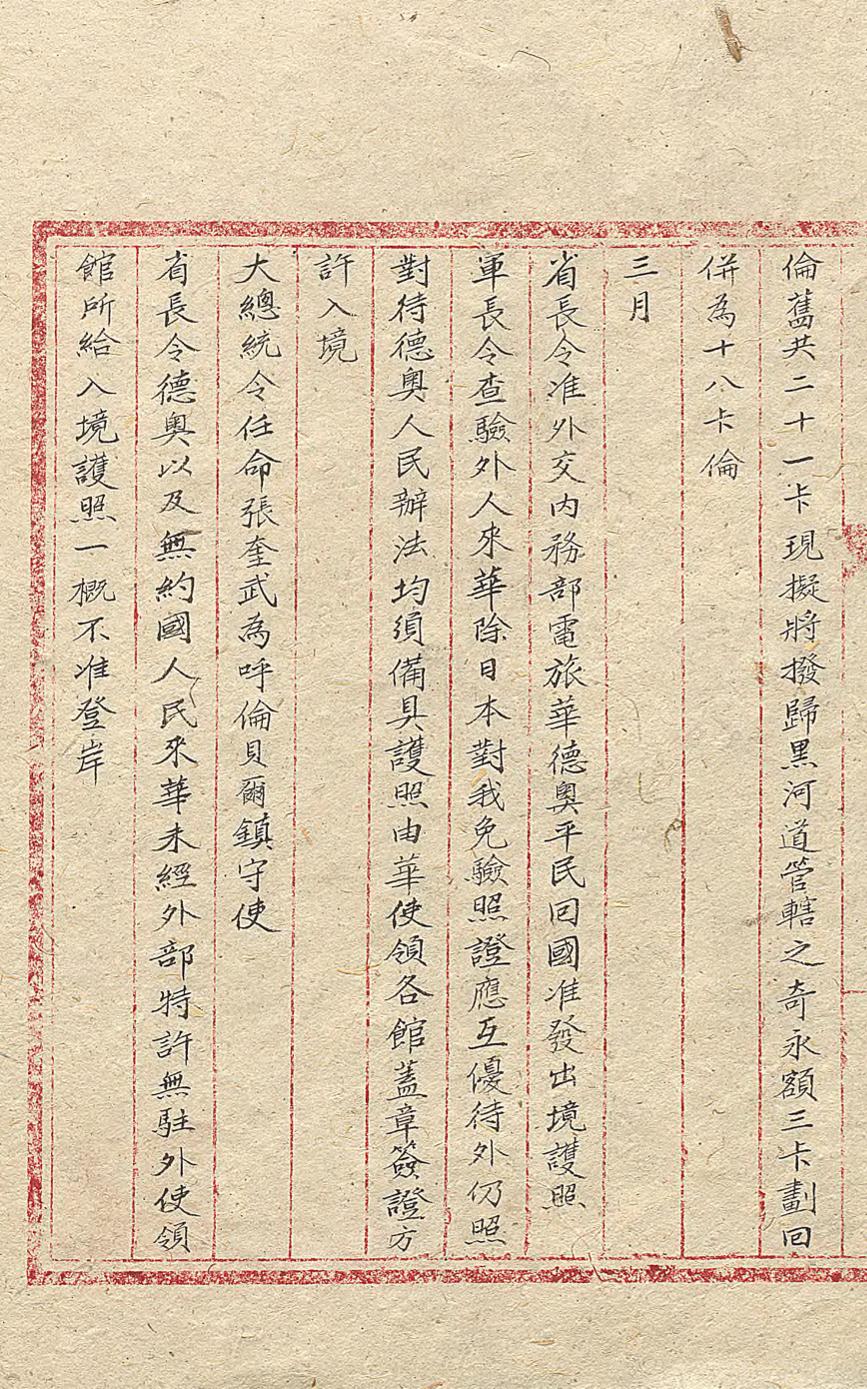 倫舊共二十一卡現擬將撥歸黑河道管轄之奇永額三卡劃回
併為十八卡倫
三月
省長令准外交內務部電旅華德奧平民回國准發出境護照
軍長令查驗外人來華除日本對我免驗照證應互優待外仍照
對待德奧人民辦法均須備具護照由華使領各館蓋章簽證方
許入境
大總統令任命張奎武為呼倫貝爾鎮守使
省長令德奧以及無約國人民來華未經外部特許無駐外使領
館所給入境護照一概不准登岸